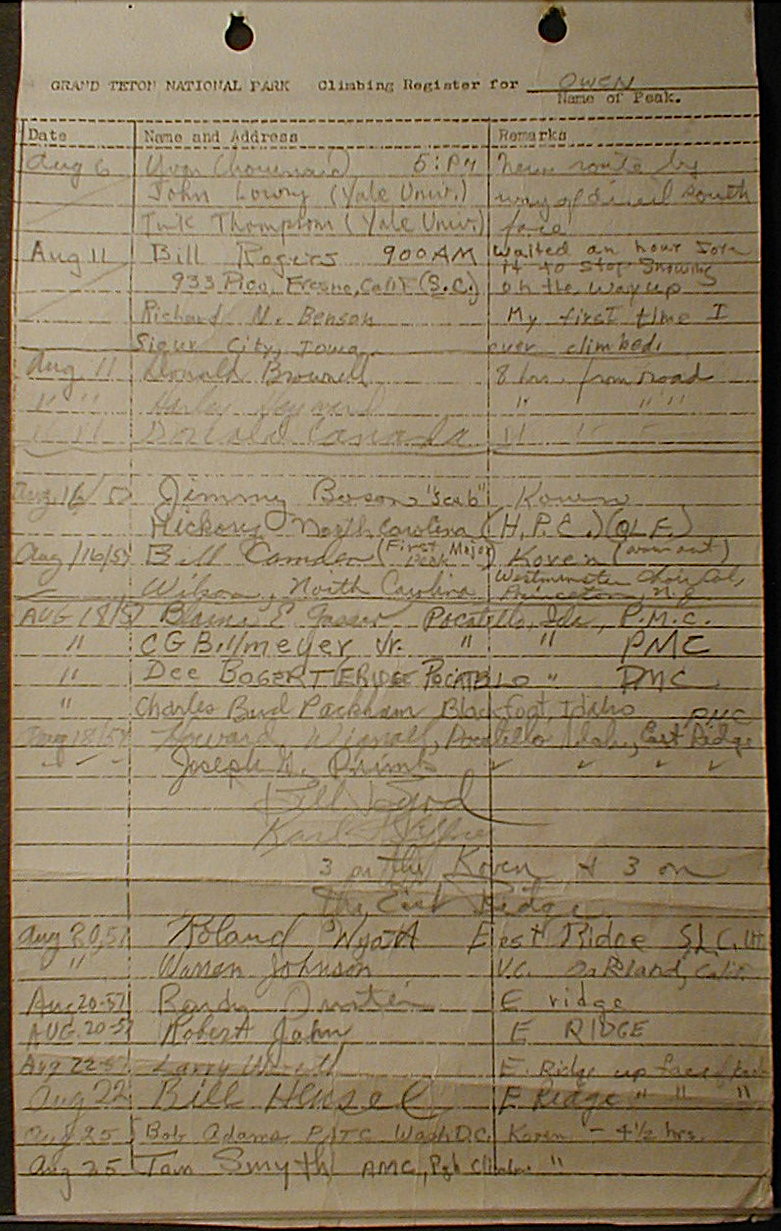 GRAND TETON NATIONAL PARK Climbing Register for OWEN
Name of Peak.
Date Name and Address Remarks
Aug 6 Yvon Chouinard 5: PM New route by
John Lowry (Yale Univ.) way of south
Thompson (Yale Univ.) face
Aug 11 Bill Rogers 900 AM Waited an hour for
it to stop snowing
933 Pico, Fresno, Calif (S.C.) on the way up
Richard N. Benson My first time I
Sioux City, Iowa ever climbed.
Aug 11 Donald Brownell 8 hrs. from road
" " " " "
" " Donald " " "
Aug 16/57 Jimmy "Scab" Koven
Hickory North Carolina (H.P.C.)
Aug/16/57 Bill Camden (First Major Peak) Koven
Wilson, North Carolina Westminster Choir Col, Princeton, N.J.
AUG 18/57 Blaine E Gasser Pocatello, Ida, P.M.C.
" CG Billmeyer Jr. " " PMC
" Dee BOGERT PMC
" Charles Bud Packham Blackfoot, Idaho PMC
Aug 18/57 Howard Pocatello Idaho, East Ridge
" " " Joseph " " " "
Bill Byrd
Karl
3 on the Koven & 3 on
the East Ridge
Aug 20, 57 Roland Wyatt East Ridge S.L.C. Ut
" Warren Johnson U.C. Oakland, Calif.
Aug 20-57 Randy E ridge
AUG. 20-57 Robert Jahn E RIDGE
Aug 22-57 Larry E. Ridge up face
Aug 22 Bill Hensel E Ridge " " "
Aug 25 Bob Adams PATC Wash D.C. Koven - 4½ hrs.
Aug 25 Tom Smyth AMC, Pgh "